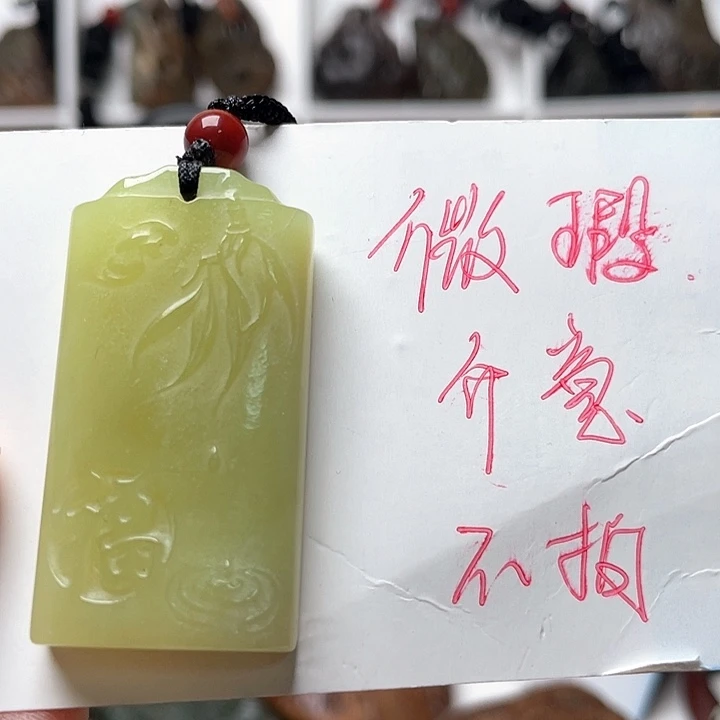 微瑕
介意
不拍
福